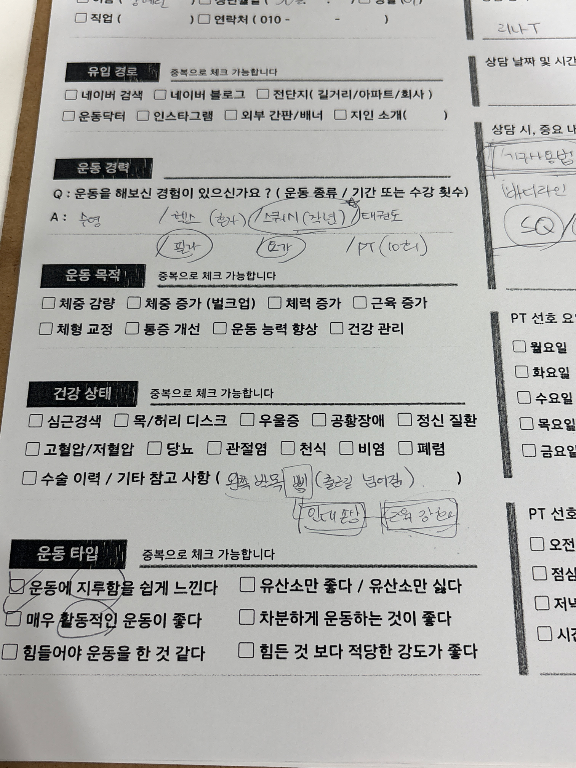 직업 (            ) 연락처 ( 010 -        -        )
리나 T
유입 경로 중복으로 체크 가능합니다
상담 날짜 및 시간
네이버 검색 네이버 블로그 전단지( 길거리/아파트/회사 )
운동닥터 인스타그램 외부 간판/배너 지인 소개(        )
상담 시, 중요 내
기구사용법
운동 경력
Q : 운동을 해보신 경험이 있으신가요 ? ( 운동 종류 / 기간 또는 수강 횟수)
바디라인
A : 수영 /헬스 (혼자) /스쿼시 (작년) /태권도
SQ/
/필라 /요가 /PT (10회)
운동 목적 중복으로 체크 가능합니다
체중 감량 체중 증가 (벌크업) 체력 증가 근육 증가
체형 교정 통증 개선 운동 능력 향상 건강 관리
PT 선호 요
월요일
화요일
수요일
목요일
금요일
건강 상태 중복으로 체크 가능합니다
심근경색 목/허리 디스크 우울증 공황장애 정신 질환
고혈압/저혈압 당뇨 관절염 천식 비염 폐렴
수술 이력 / 기타 참고 사항 ( 왼쪽 발목 삠 (출근길 넘어짐) )
인대 손상 근육 강화
운동 타입 중복으로 체크 가능합니다
PT 선호
오전
점심
저녁
시간
운동에 지루함을 쉽게 느낀다 유산소만 좋다 / 유산소만 싫다
매우 활동적인 운동이 좋다 차분하게 운동하는 것이 좋다
힘들어야 운동을 한 것 같다 힘든 것 보다 적당한 강도가 좋다